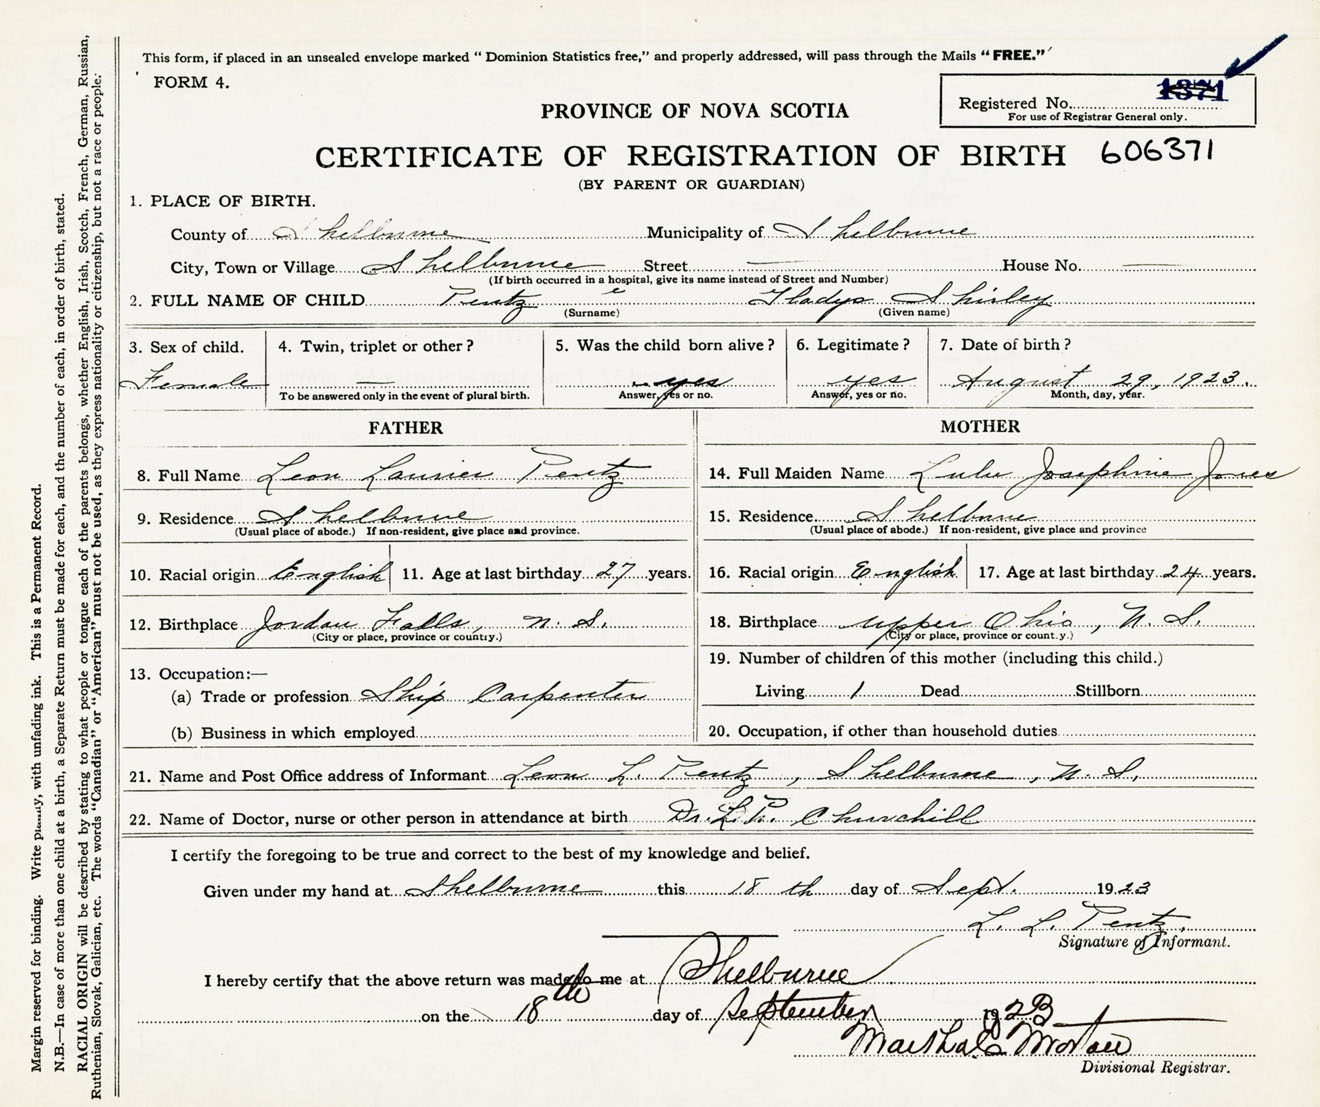 This form, if placed in an unsealed envelope marked “Dominion Statistics free,” and properly addressed, will pass through the Mails “FREE.”
FORM 4.
Registered No. 1371
For use of Registrar General only.
PROVINCE OF NOVA SCOTIA
CERTIFICATE OF REGISTRATION OF BIRTH 606371
(BY PARENT OR GUARDIAN)
1. PLACE OF BIRTH.
County of Shelburne Municipality of Shelburne
City, Town or Village Shelburne Street — House No. —
(If birth occurred in a hospital, give its name instead of Street and Number)
2. FULL NAME OF CHILD Pentz Gladys Shirley
(Surname) (Given name)
3. Sex of child. 4. Twin, triplet or other? 5. Was the child born alive? 6. Legitimate? 7. Date of birth?
Female — yes yes August 29, 1923.
To be answered only in the event of plural birth. Answer, yes or no. Answer, yes or no. Month, day, year.
FATHER MOTHER
8. Full Name Leon Laurier Pentz 14. Full Maiden Name Lulu Josephine Jones
9. Residence Shelburne 15. Residence Shelburne
(Usual place of abode.) If non-resident, give place and province. (Usual place of abode.) If non-resident, give place and province
10. Racial origin English 11. Age at last birthday 27 years. 16. Racial origin English 17. Age at last birthday 24 years.
12. Birthplace Jordan Falls, N. S. 18. Birthplace Upper Ohio, N. S.
(City or place, province or country.) (City or place, province or country.)
13. Occupation:— 19. Number of children of this mother (including this child.)
(a) Trade or profession Ship Carpenter Living 1 Dead Stillborn
(b) Business in which employed 20. Occupation, if other than household duties
21. Name and Post Office address of Informant Leon L. Pentz, Shelburne, N. S.
22. Name of Doctor, nurse or other person in attendance at birth Dr. L. P. Churchill
I certify the foregoing to be true and correct to the best of my knowledge and belief.
Given under my hand at Shelburne this 18 th day of Sept. 1923
L. L. Pentz.
Signature of Informant.
I hereby certify that the above return was made to me at Shelburne
on the 18th day of September 1923
Morton
Divisional Registrar.
Margin reserved for binding. Write plainly, with unfading ink. This is a Permanent Record.
N.B.—In case of more than one child at a birth, a Separate Return must be made for each, and the number of each, in order of birth, stated.
RACIAL ORIGIN will be described by stating to what people or tongue each of the parents belongs, whether English, Irish, Scotch, French, German, Russian,
Ruthenian, Slovak, Galician, etc. The words “Canadian” or “American” must not be used, as they express nationality or citizenship, but not a race or people.